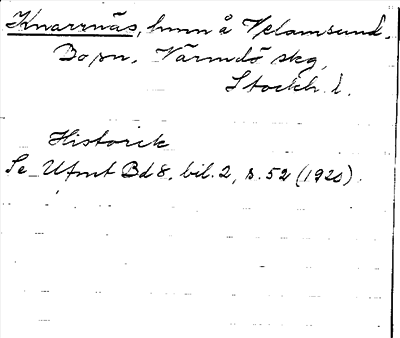 Knarrnäs, hmn å Velamsund.
Bo sn, Värmdö skg,
Stockh. l.
Historik
Se Utmt Bd 8, bil. 2, s. 52 (1920).